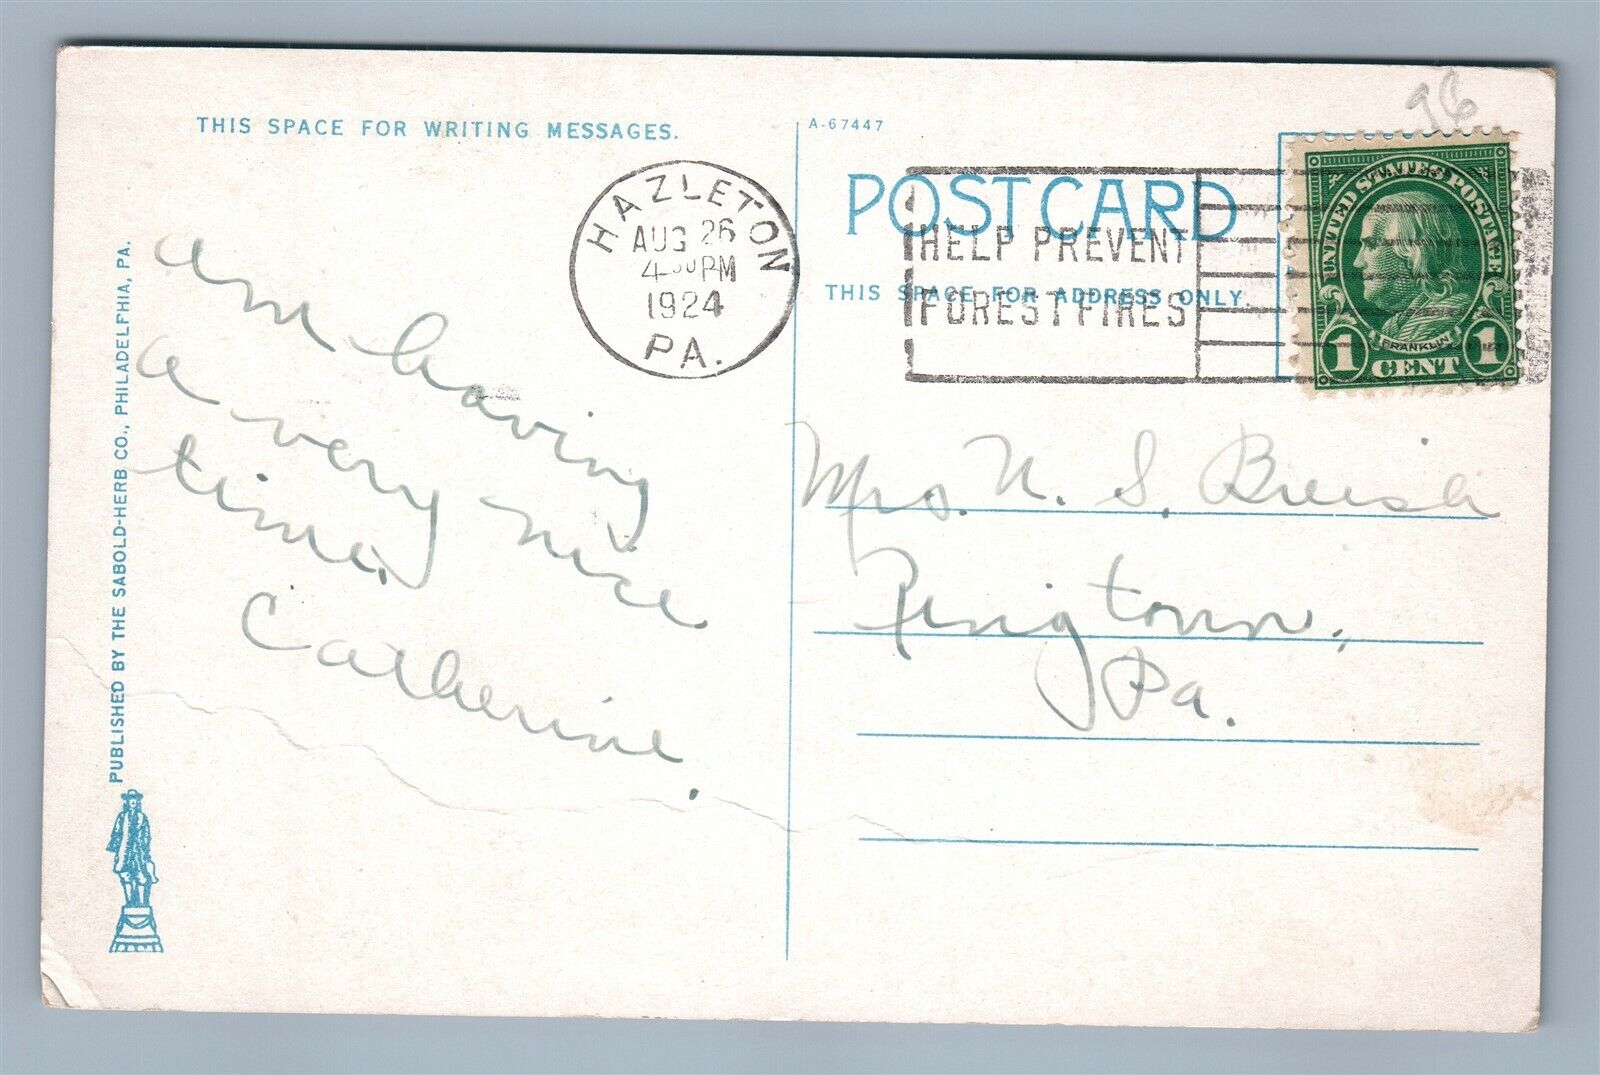 96
THIS SPACE FOR WRITING MESSAGES.
A-67447
POST CARD
THIS SPACE FOR ADDRESS ONLY
HAZLETON
AUG 26
4 PM
1924
PA.
HELP PREVENT
FOREST FIRES
UNITED STATES POSTAGE
FRANKLIN
1 CENT 1
am having
a very nice
time.
Catherine.
Mrs. N. S. Breisch
Ringtown,
Pa.
PUBLISHED BY THE SABOLD-HERB CO., PHILADELPHIA, PA.